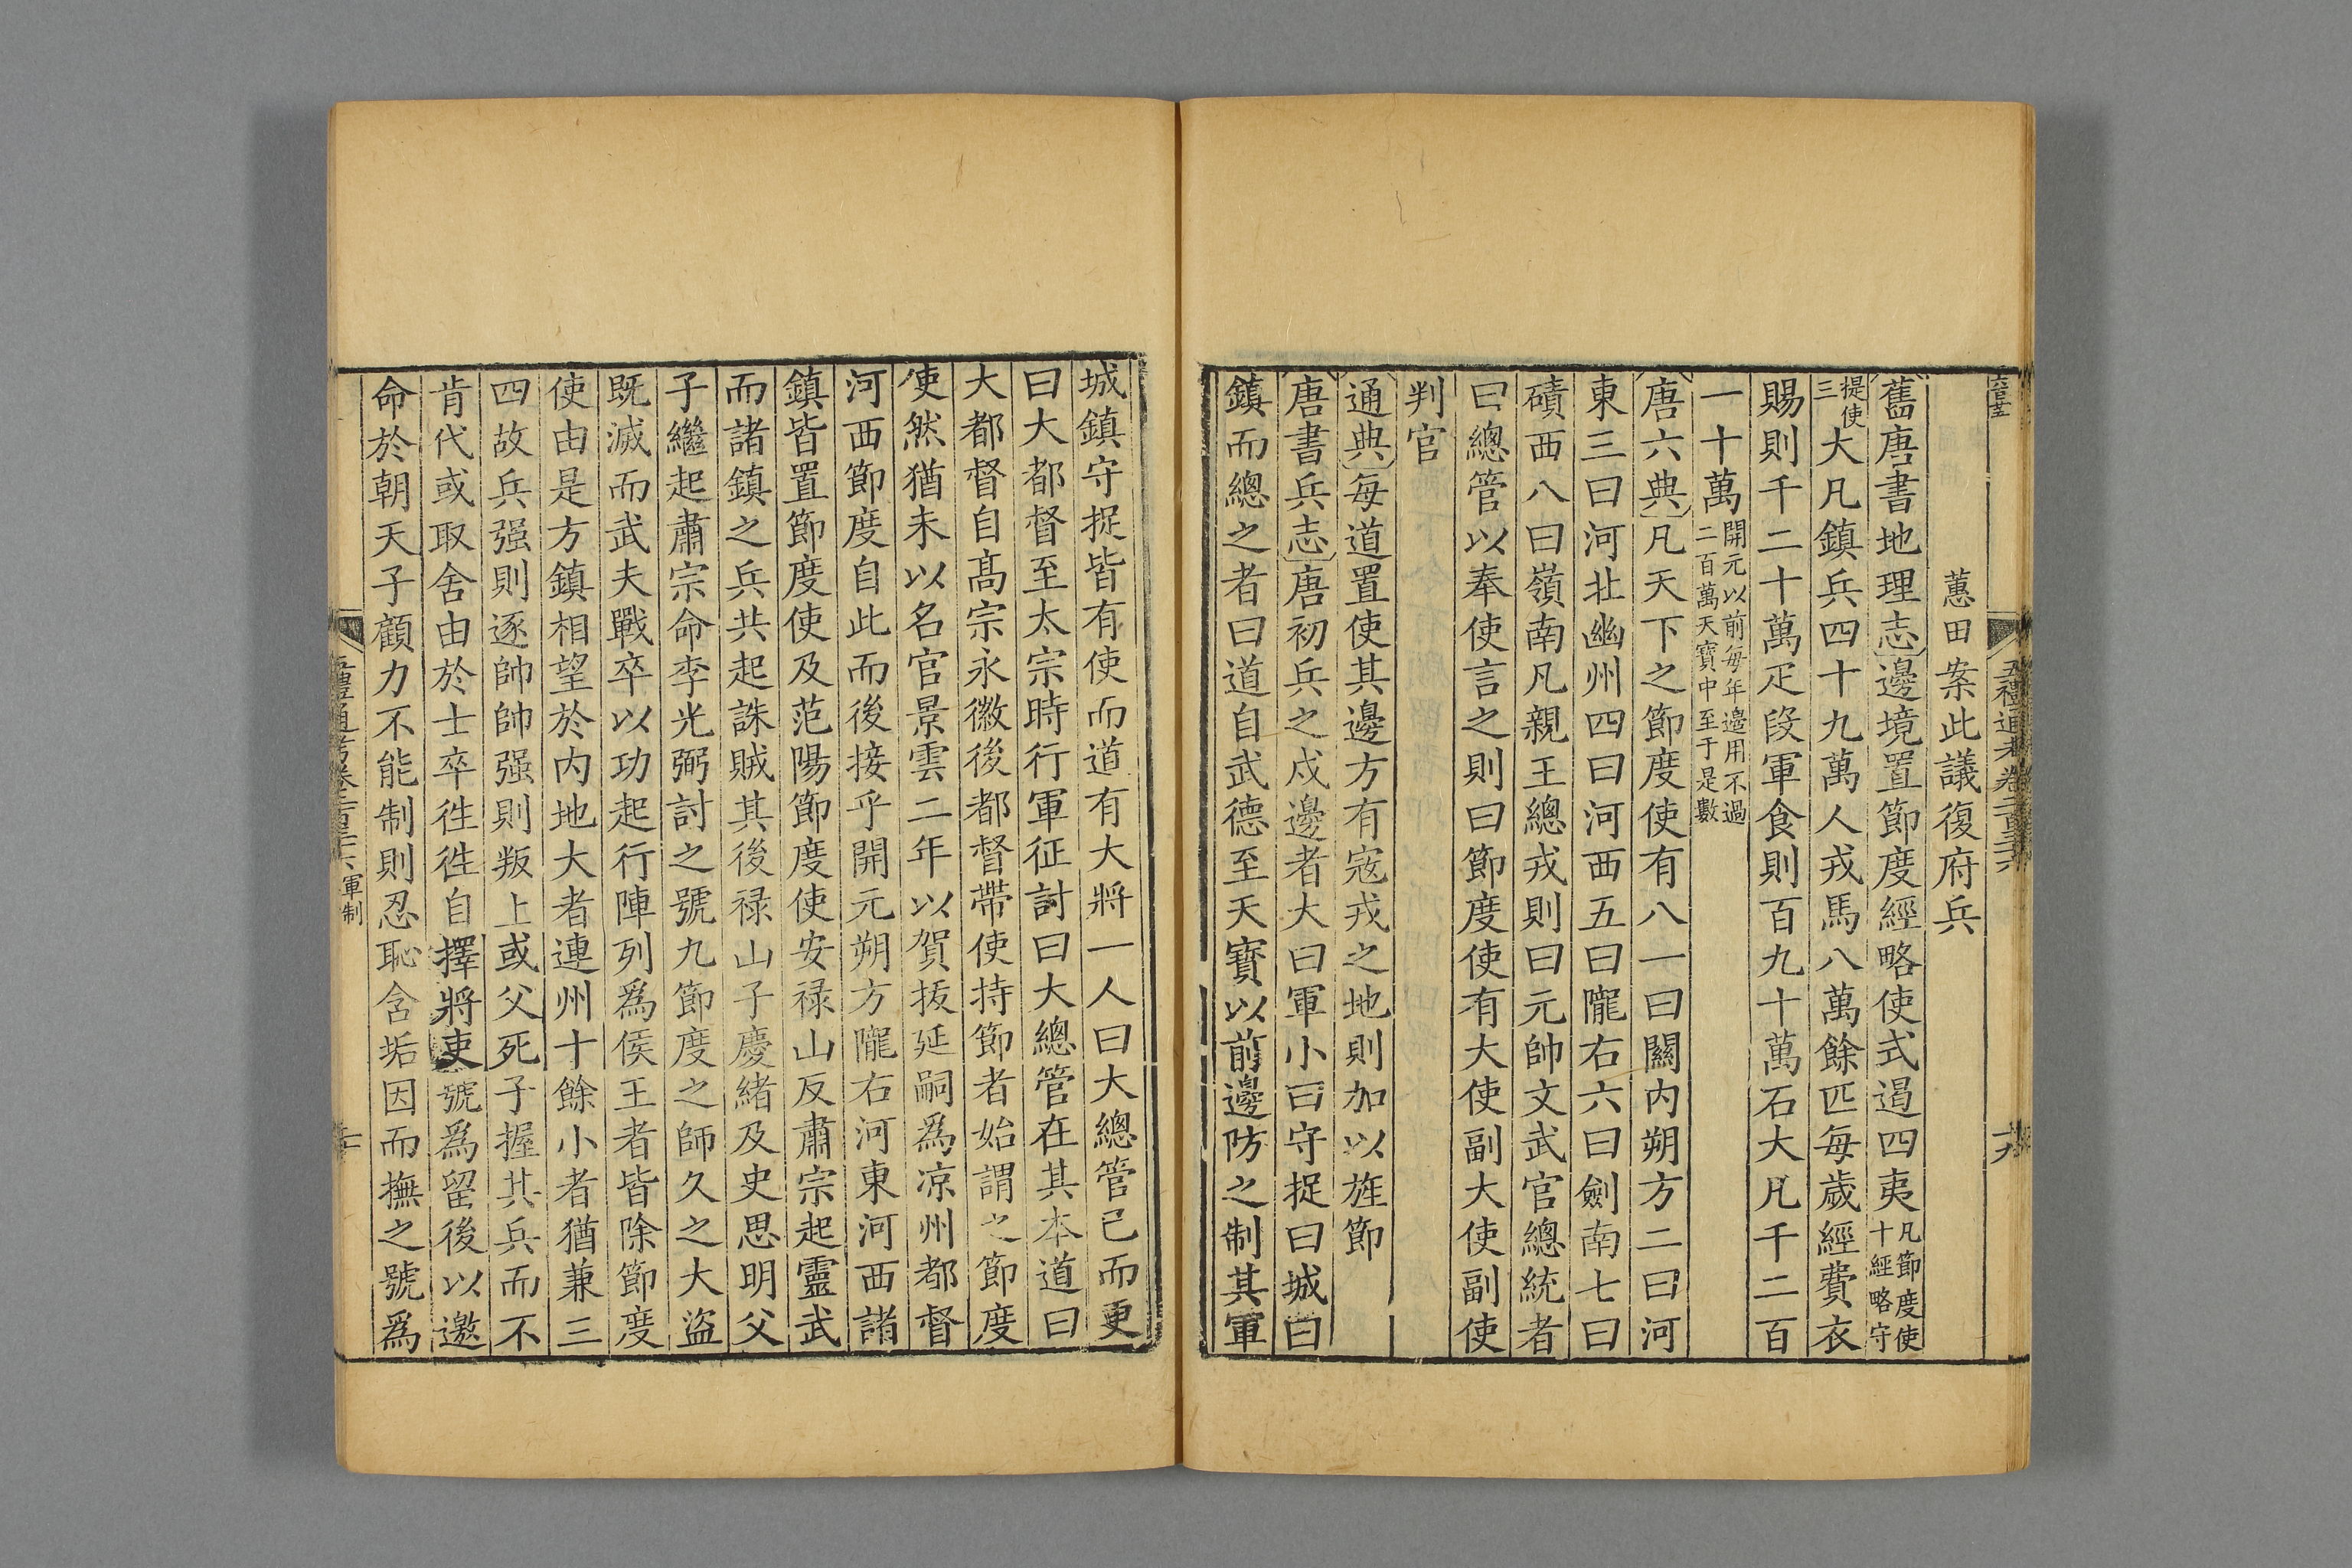 五禮通考卷二百三十六
十九
蕙田案此議復府兵
舊唐書地理志邊境置節度經略使式遏四夷凡節度使十經略守
提使三大凡鎮兵四十九萬人戎馬八萬餘匹每歲經費衣
賜則千二十萬疋段軍食則百九十萬石大凡千二百
一十萬開元以前每年邊用不過二百萬天寶中至于是數
唐六典凡天下之節度使有八一曰關內朔方二曰河
東三曰河北幽州四曰河西五曰隴右六曰劍南七曰
磧西八曰嶺南凡親王總戎則曰元帥文武官總統者
曰總管以奉使言之則曰節度使有大使副大使副使
判官
通典每道置使其邊方有寇戎之地則加以旌節
唐書兵志唐初兵之戍邊者大曰軍小曰守捉曰城曰
鎮而總之者曰道自武德至天寶以前邊防之制其軍
城鎮守捉皆有使而道有大將一人曰大總管已而更
曰大都督至太宗時行軍征討曰大總管在其本道曰
大都督自髙宗永徽後都督帶使持節者始謂之節度
使然猶未以名官景雲二年以賀拔延嗣爲凉州都督
河西節度自此而後接乎開元朔方隴右河東河西諸
鎮皆置節度使及范陽節度使安禄山反肅宗起靈武
而諸鎮之兵共起誅賊其後禄山子慶緒及史思明父
子繼起肅宗命李光弼討之號九節度之師久之大盜
既滅而武夫戰卒以功起行陣列爲侯王者皆除節度
使由是方鎮相望於內地大者連州十餘小者猶兼三
四故兵强則逐帥帥强則叛上或父死子握其兵而不
肯代或取舍由於士卒徃徃自擇將吏號爲留後以邀
命於朝天子顧力不能制則忍恥含垢因而撫之號爲
五禮通考卷二百三十六軍制
二十